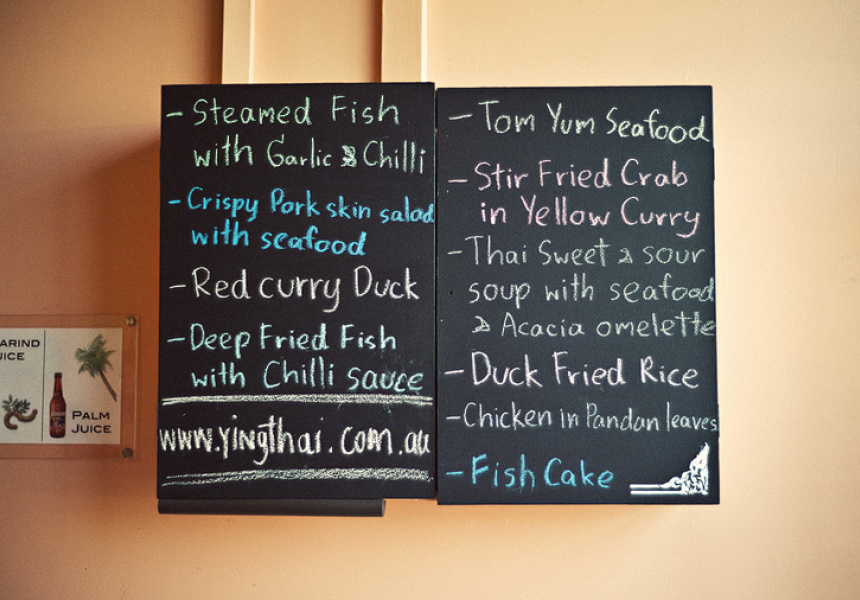 - Steamed Fish
with Garlic & Chilli
- Crispy Pork skin salad
with seafood
- Red curry Duck
- Deep Fried Fish
with Chilli sauce
www.yingthai.com.au
- Tom Yum Seafood
- Stir Fried Crab
in Yellow Curry
- Thai Sweet & sour
soup with seafood
& Acacia omelette
- Duck Fried Rice
- Chicken in Pandan leaves
- Fish Cake
ARIND
ICE
PALM
JUICE